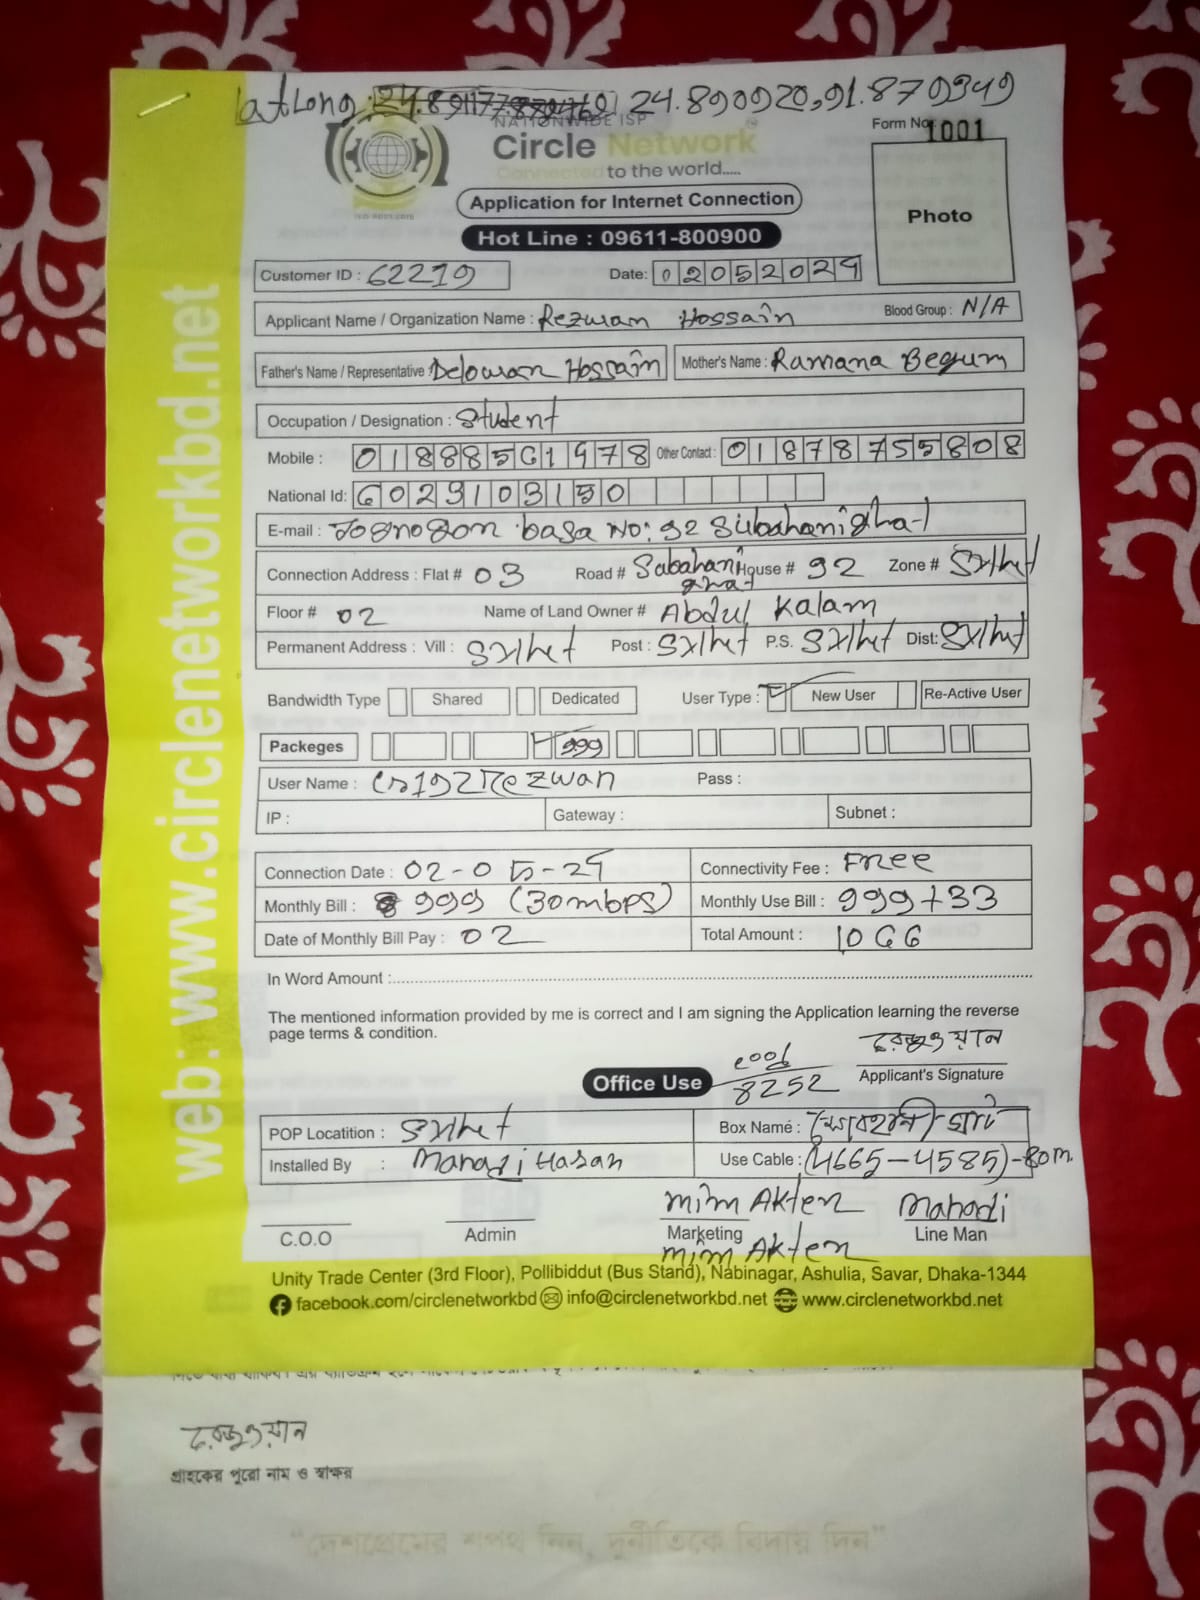 LatLong: 24.890920,91.879349
NATIONWIDE ISP
Circle Network
Connected to the world.....
Form No: 1001
Application for Internet Connection
Photo
Hot Line : 09611-800900
Customer ID : 62219 Date: 02052024
Applicant Name / Organization Name : Rezwan Hossain Blood Group : N/A
Father's Name / Representative : Delowar Hossain Mother's Name : Ramana Begum
Occupation / Designation : Student
Mobile : Other Contact : 01878755808
National Id: 6029103150
E-mail : basa No: 92 Subahanighat
Connection Address : Flat # 03 Road # Sabahanighat House # 92 Zone # Sylhet
Floor # 02 Name of Land Owner # Abdul Kalam
Permanent Address : Vill : Sylhet Post : Sylhet P.S. Sylhet Dist: Sylhet
Bandwidth Type Shared Dedicated User Type : New User Re-Active User
Packeges 999
User Name : Pass :
IP : Gateway : Subnet :
Connection Date : 02-05-24 Connectivity Fee : Free
Monthly Bill : 999 (30mbps) Monthly Use Bill : 999+33
Date of Monthly Bill Pay : 02 Total Amount : 1066
In Word Amount :
The mentioned information provided by me is correct and I am signing the Application learning the reverse
page terms & condition.
রেজুওয়ান
Office Use 8252 Applicant's Signature
POP Locatition : Sylhet Box Name : সোবহানী ঘাট
Installed By : Mahadi Hasan Use Cable : (4665-4585)-80m.
Mim Akter Mahadi
C.O.O Admin Marketing Line Man
Mim Akter
Unity Trade Center (3rd Floor), Pollibiddut (Bus Stand), Nabinagar, Ashulia, Savar, Dhaka-1344
facebook.com/circlenetworkbd info@circlenetworkbd.net www.circlenetworkbd.net
web: www.circlenetworkbd.net
রেজুওয়ান
গ্রাহকের পুরো নাম ও স্বাক্ষর
"দেশপ্রেমের শপথ নিন, দুর্নীতিকে বিদায় দিন"